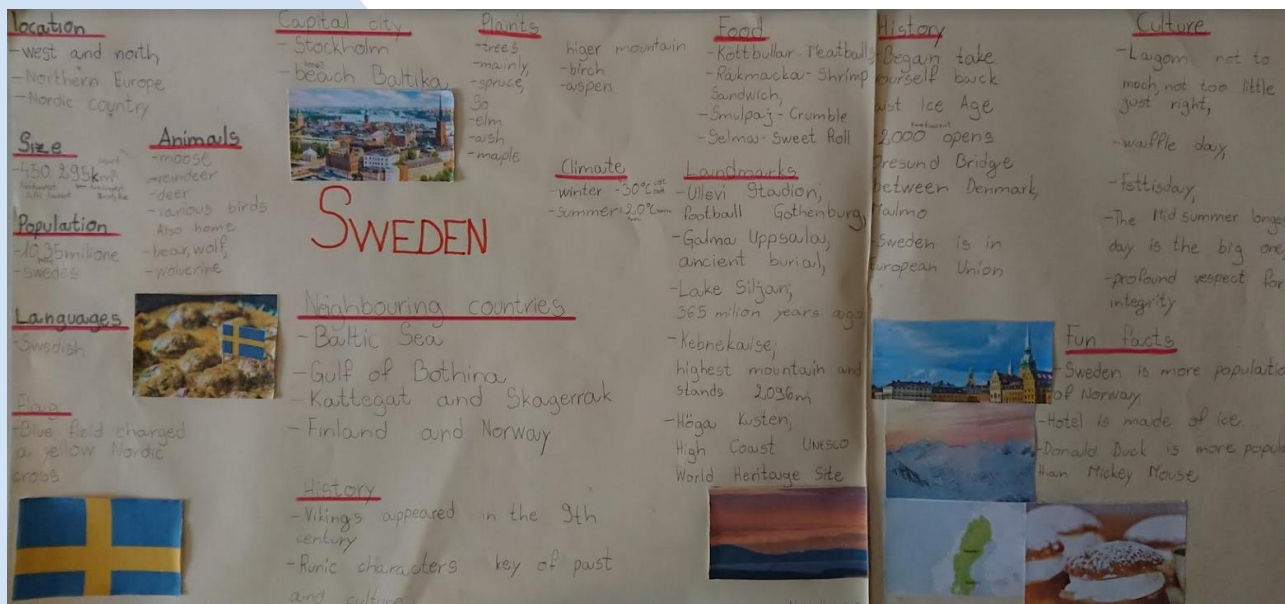 location
-west and north,
-Northern Europe
-Nordic country
Size
-450.295km²
Population
-10,35 milione
-swedes
Languages
-Swedish
Flag
-Blue field charged
a yellow Nordic
cross
Animals
-moose
-reindeer
-deer
-various birds
Also home
-bear, wolf,
-wolverine
Capital city
-Stockholm
-beach Baltika,
SWEDEN
Neighbouring countries
-Baltic Sea
-Gulf of Bothina,
Kattegat and Skagerrak
-Finland and Norway
History
-Vikings appeared in the 9th
century
-Runic characters key of past
and culture
Plants
-trees
-mainly,
-spruce,
So
-elm
-ash
-maple
higer mountain
-birch
-aspen
Climate
-winter -30°C
-summer 20°C
Food
-Köttbullar-Meatballs
-Räkmacka-Shrimp
Sandwich,
-Smulpaj-Crumble
-Selma-Sweet Roll
Landmarks
-Ullevi Stadion,
football Gothenburg,
-Galma Uppsala,
ancient burial,
-Lake Siljan,
365 milion years ago
-Kebnekaise,
highest mountain and
stands 2.096m
-Höga Kusten,
High Coast UNESCO
World Heritage Site
History
-Began take
yourself back
Ice Age
2000 opens
Øresund Bridge
between Denmark,
Malmo
-Sweden is in
European Union
Culture
-Lagom not to
moch, not too little
just right,
-waffle day,
-fettisday,
-The Mid summer longe
day is the big one,
-profound respect for
integrity
Fun facts
-Sweden is more populatio
of Norway,
-Hotel is made of ice.
-Donald Duck is more popul
than Mickey Mouse